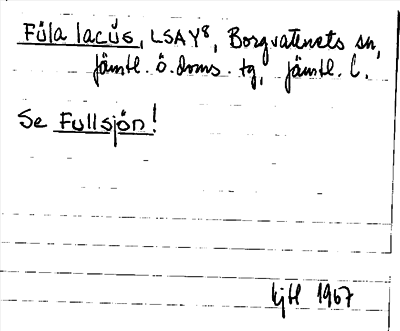 Fůla lacůs, LSAY8, Borgvattnets sn,
jämtl. ö. doms. tg, jämtl. l.
Se Fullsjön!
kjtl 1967